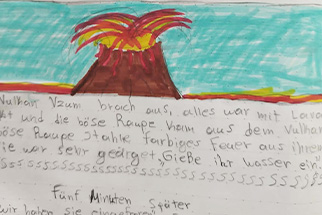 Vulkan Vzum brach aus, alles war mit Lava
und die böse Raupe kam aus dem Vulkan
böse Raupe Stahle farbiges Feuer aus ihren
ie war sehr geärget. „Gieße ihr wasser ein!
Fünf Minuten Später
wir haben sie eingefroren